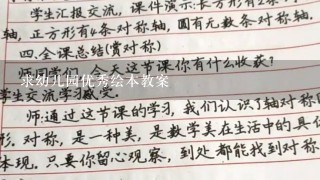 学生汇报交流，课件演示：长方形有2条
轴，正方形有4条对称轴，圆有无数条对称轴
四.全课总结(赏对称)
求幼儿园优秀绘本教案
今天这节课你有什么收获？
学生交流学习
师：通过这节课的学习，我们认识了轴对称
形.对称，是一种美，是数学美在生活中的具
体现.只要你留心观察，到处都能找到对称